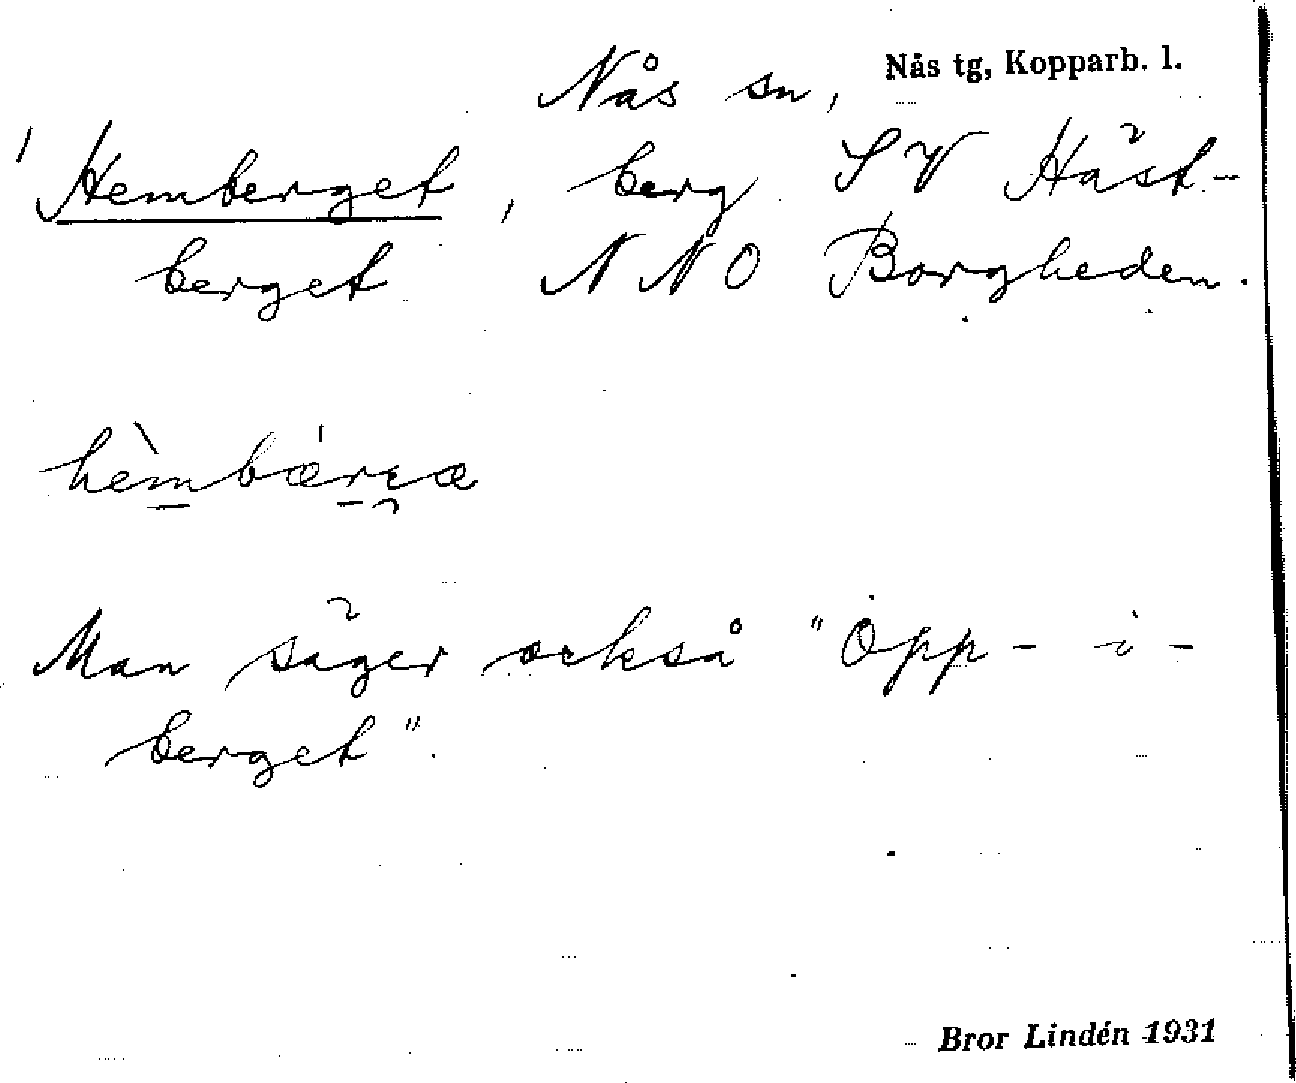 Nås sn, Nås tg, Kopparb. l.
Hemberget, berg SV Häst-
berget NNO Borgheden.
hèmbæ'rɩæ
Man säger också "Opp-i-
berget".
Bror Lindén 1931